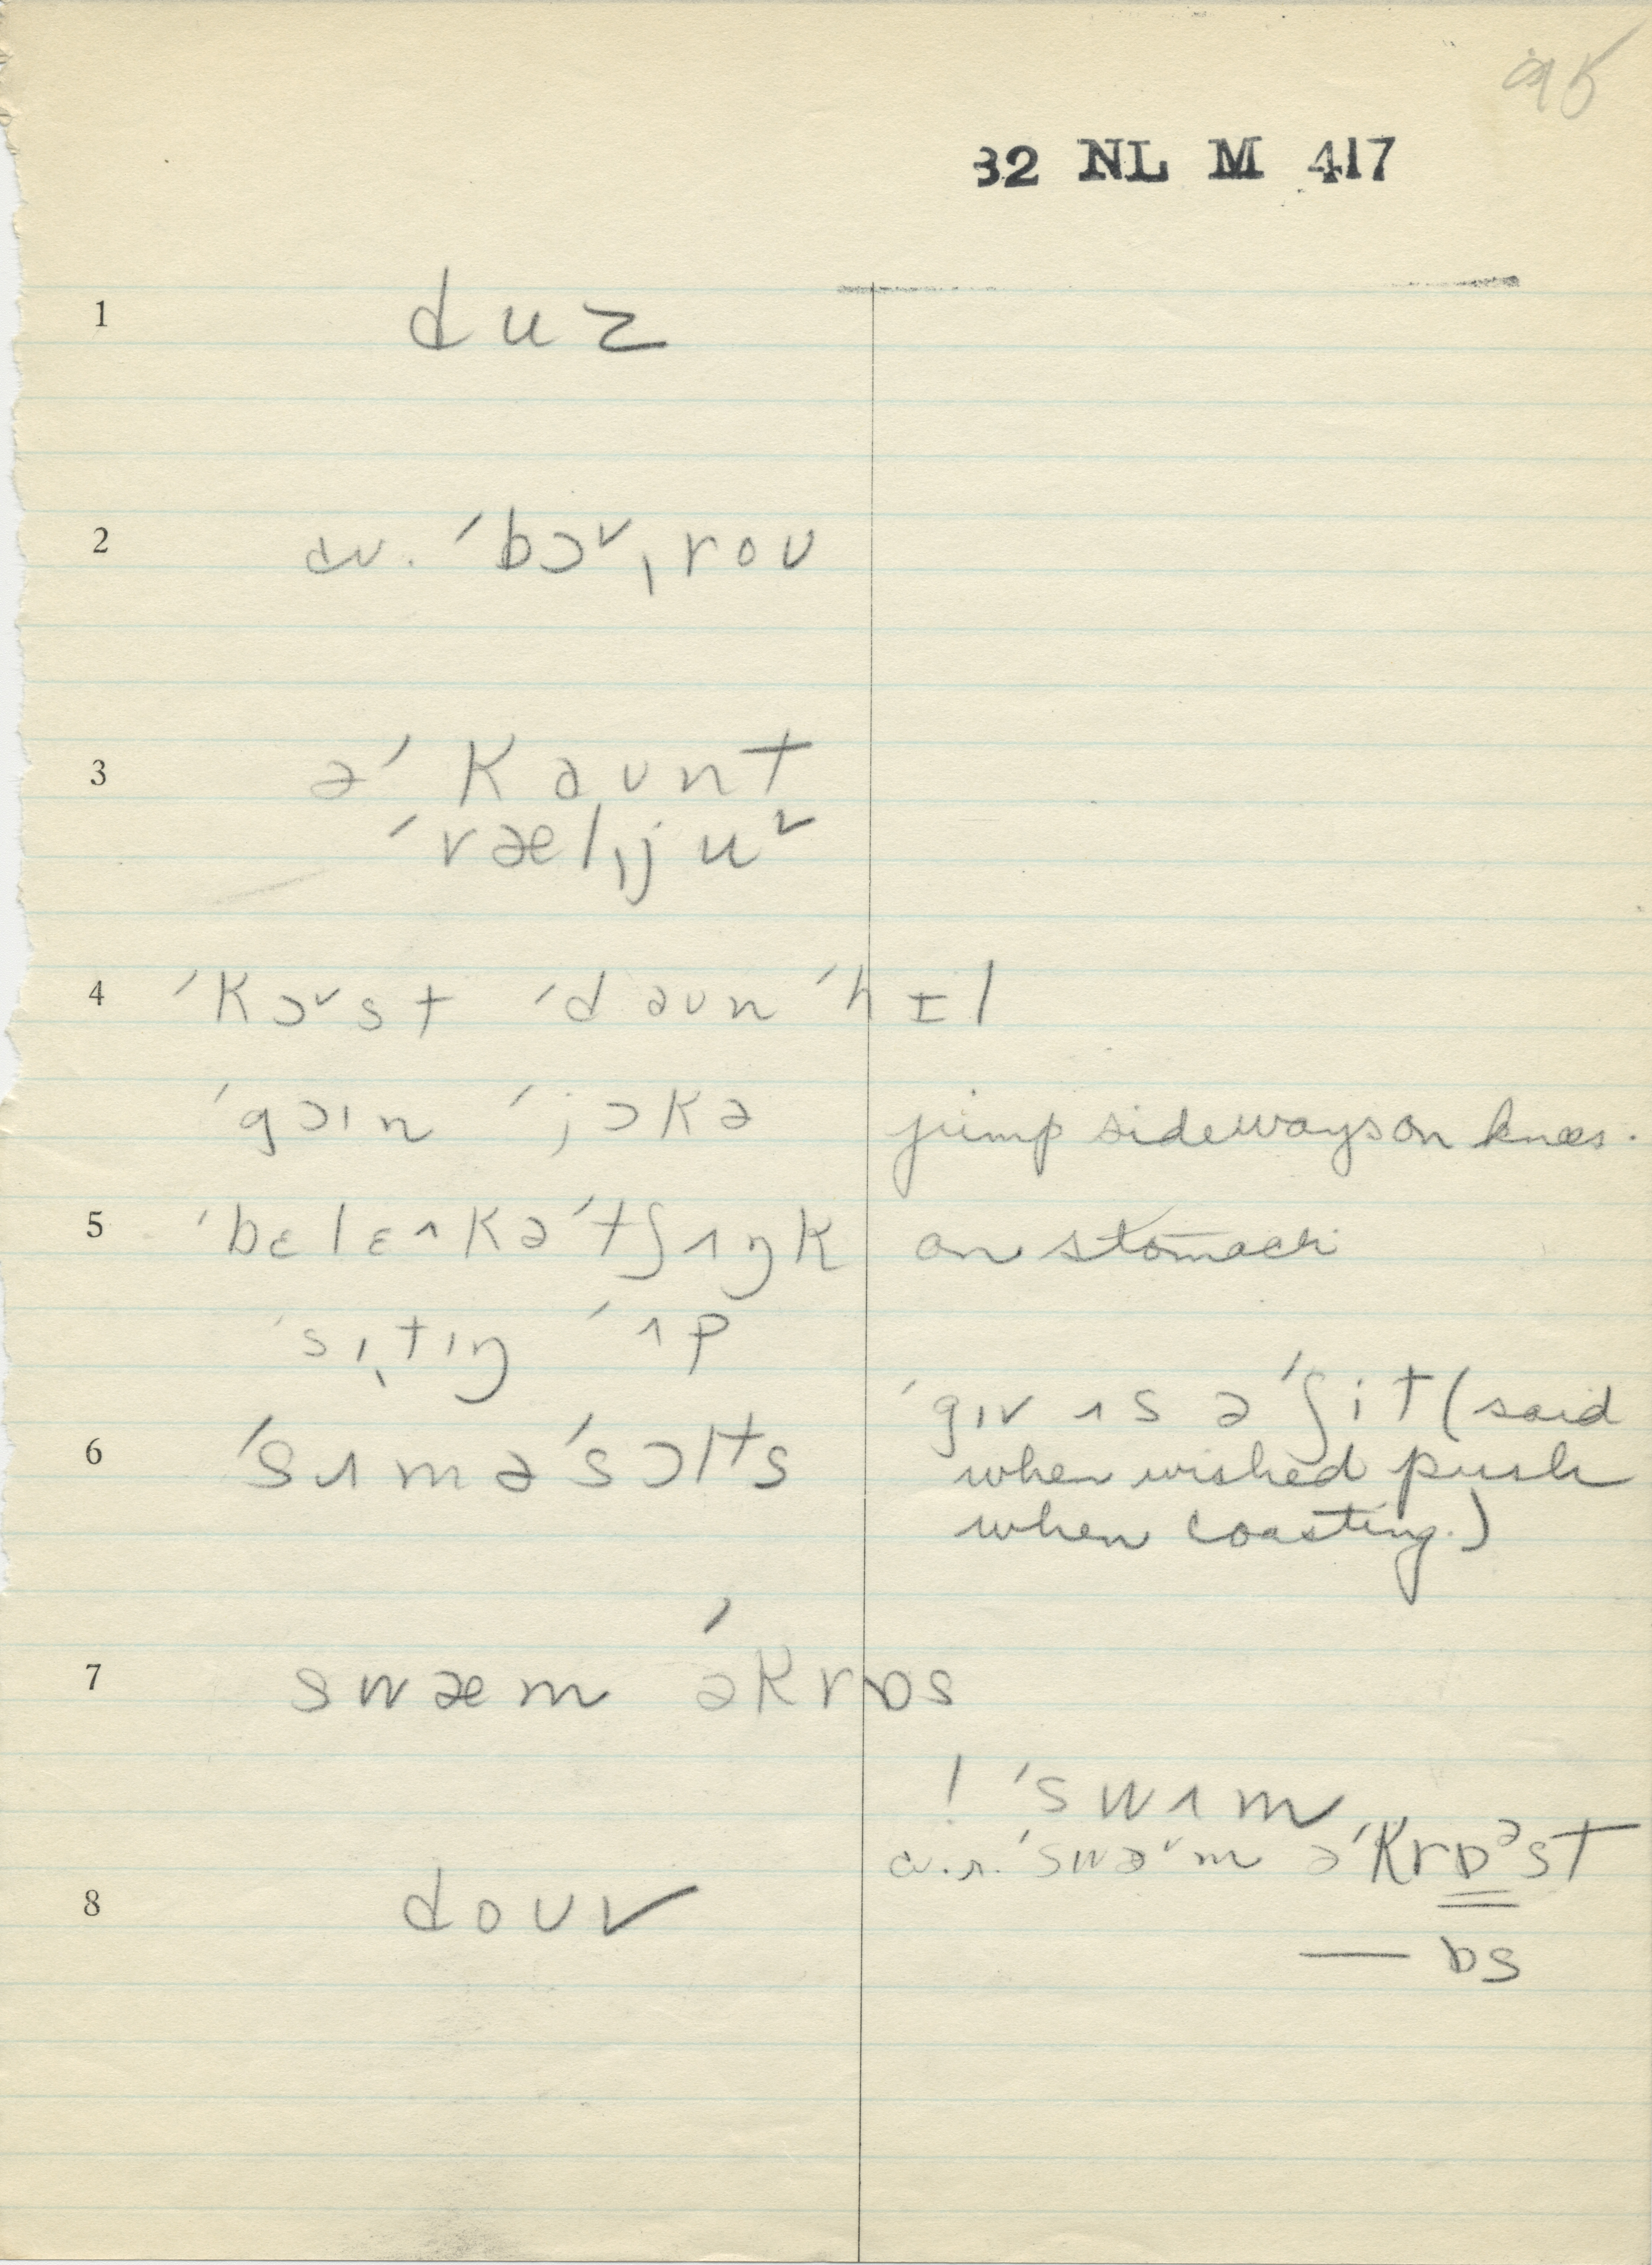 95
32 NL M 417
1 duz
2 cv. ˈbɔᵛˌroʊ
3 əˈkaʊnt
ˈvælˌjuᵛ
4 ˈkɔᵛst ˈdəʊn ˈhɪl
ˈgɔɪn ˈjɔkə jump sideways on knees.
5 ˈbɛlɛʌkəˈtʃʌŋk on stomach
ˈsɪˌtɪŋ ˈʌp
ˈgɪv ʌs ə ˈʃit (said
6 ˈsʌməˈsɔlts
when wished push
when coasting.)
7 swæm əˈkrɒs
! ˈswʌm
c.r. ˈswəᵛm əˈkrɒᵊst
8 doʊv
— ɒs